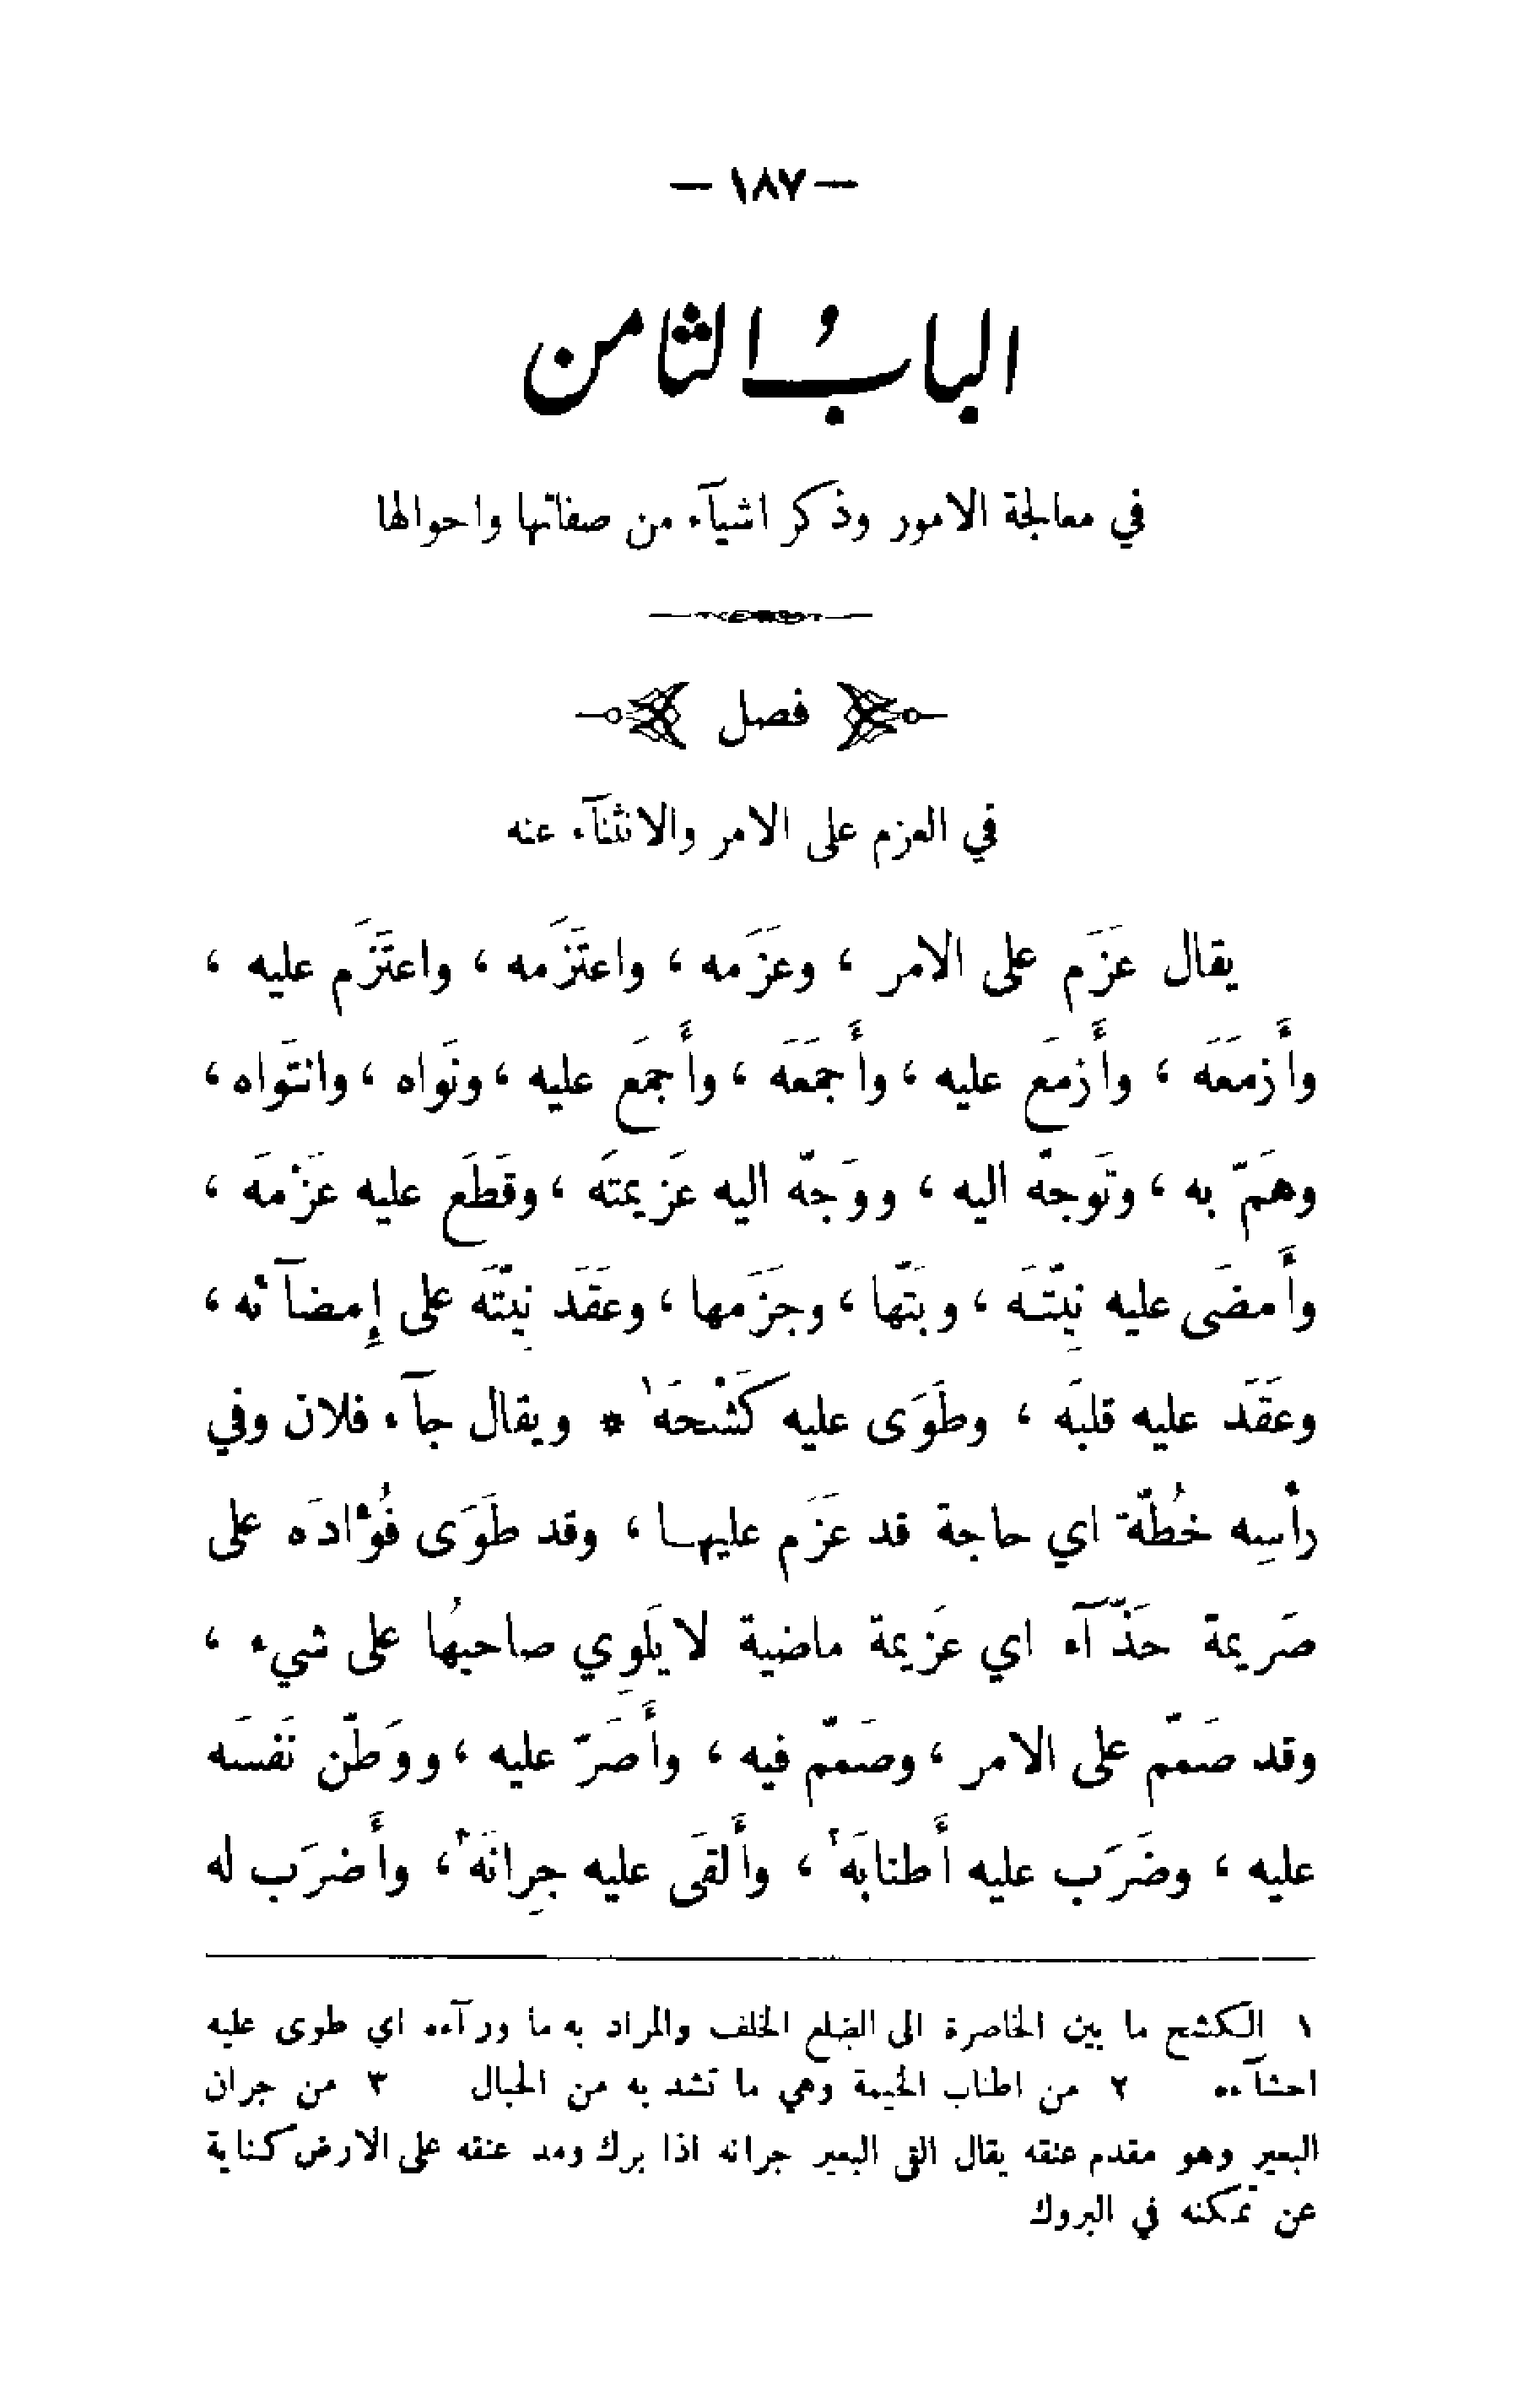 — ١٨٧ —
البابُ الثامن
في معالجة الامور وذكر اشيآء من صفاتها واحوالها
فصل
في العزم على الامر والانثنآء عنه
يقال عَزَم على الامر ، وعَزَمه ، واعتَزَمه ، واعتَزَم عليه ،
وأَزمَعَه ، وأَزمَع عليه ، وأَجمَعَه ، وأَجمَع عليه ، ونَواه ، وانتَواه ،
وهَمّ به ، وتَوجّه اليه ، ووَجّه اليه عَزيمتَه ، وقَطَع عليه عَزْمَه ،
وأَمضَى عليه نِيّتَه ، وبَتّها ، وجَزَمها ، وعَقَد نِيّتَه على إِمضآئه ،
وعَقَد عليه قلبَه ، وطَوَى عليه كَشْحَه١ * ويقال جآء فلان وفي
رأسِه خُطّة اي حاجة قد عَزَم عليها ، وقد طَوَى فُؤادَه على
صَريمة حَذّآء اي عَزيمة ماضية لا يَلوِي صاحبُها على شيء ،
وقد صَمّم على الامر ، وصَمّم فيه ، وأَصَرّ عليه ، ووَطّن نَفسَه
عليه ، وضَرَب عليه أَطنابَه٢ ، وأَلقَى عليه جِرانَه٣ ، وأَضرَب له
١ الكشح ما بين الخاصرة الى الضلع الخلف والمراد به ما ورآءه اي طوى عليه
احشآءه ٢ من اطناب الخيمة وهي ما تشد به من الحبال ٣ من جران
البعير وهو مقدم عنقه يقال القى البعير جرانه اذا برك ومد عنقه على الارض كناية
عن تمكنه في البروك